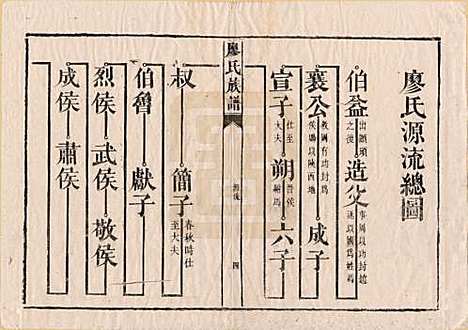 廖氏源流總圖
伯益 出顓頊之後 造父 事周以功封趙遂以國為姓焉
襄公 救周有功封為侯賜以陝西地 成子
宣子 仕至大夫 朔 晉侯 六子
廖氏族譜
四
叔 簡子 春秋時仕至大夫
伯魯 獻子
烈侯 武侯 敬侯
成侯 肅侯